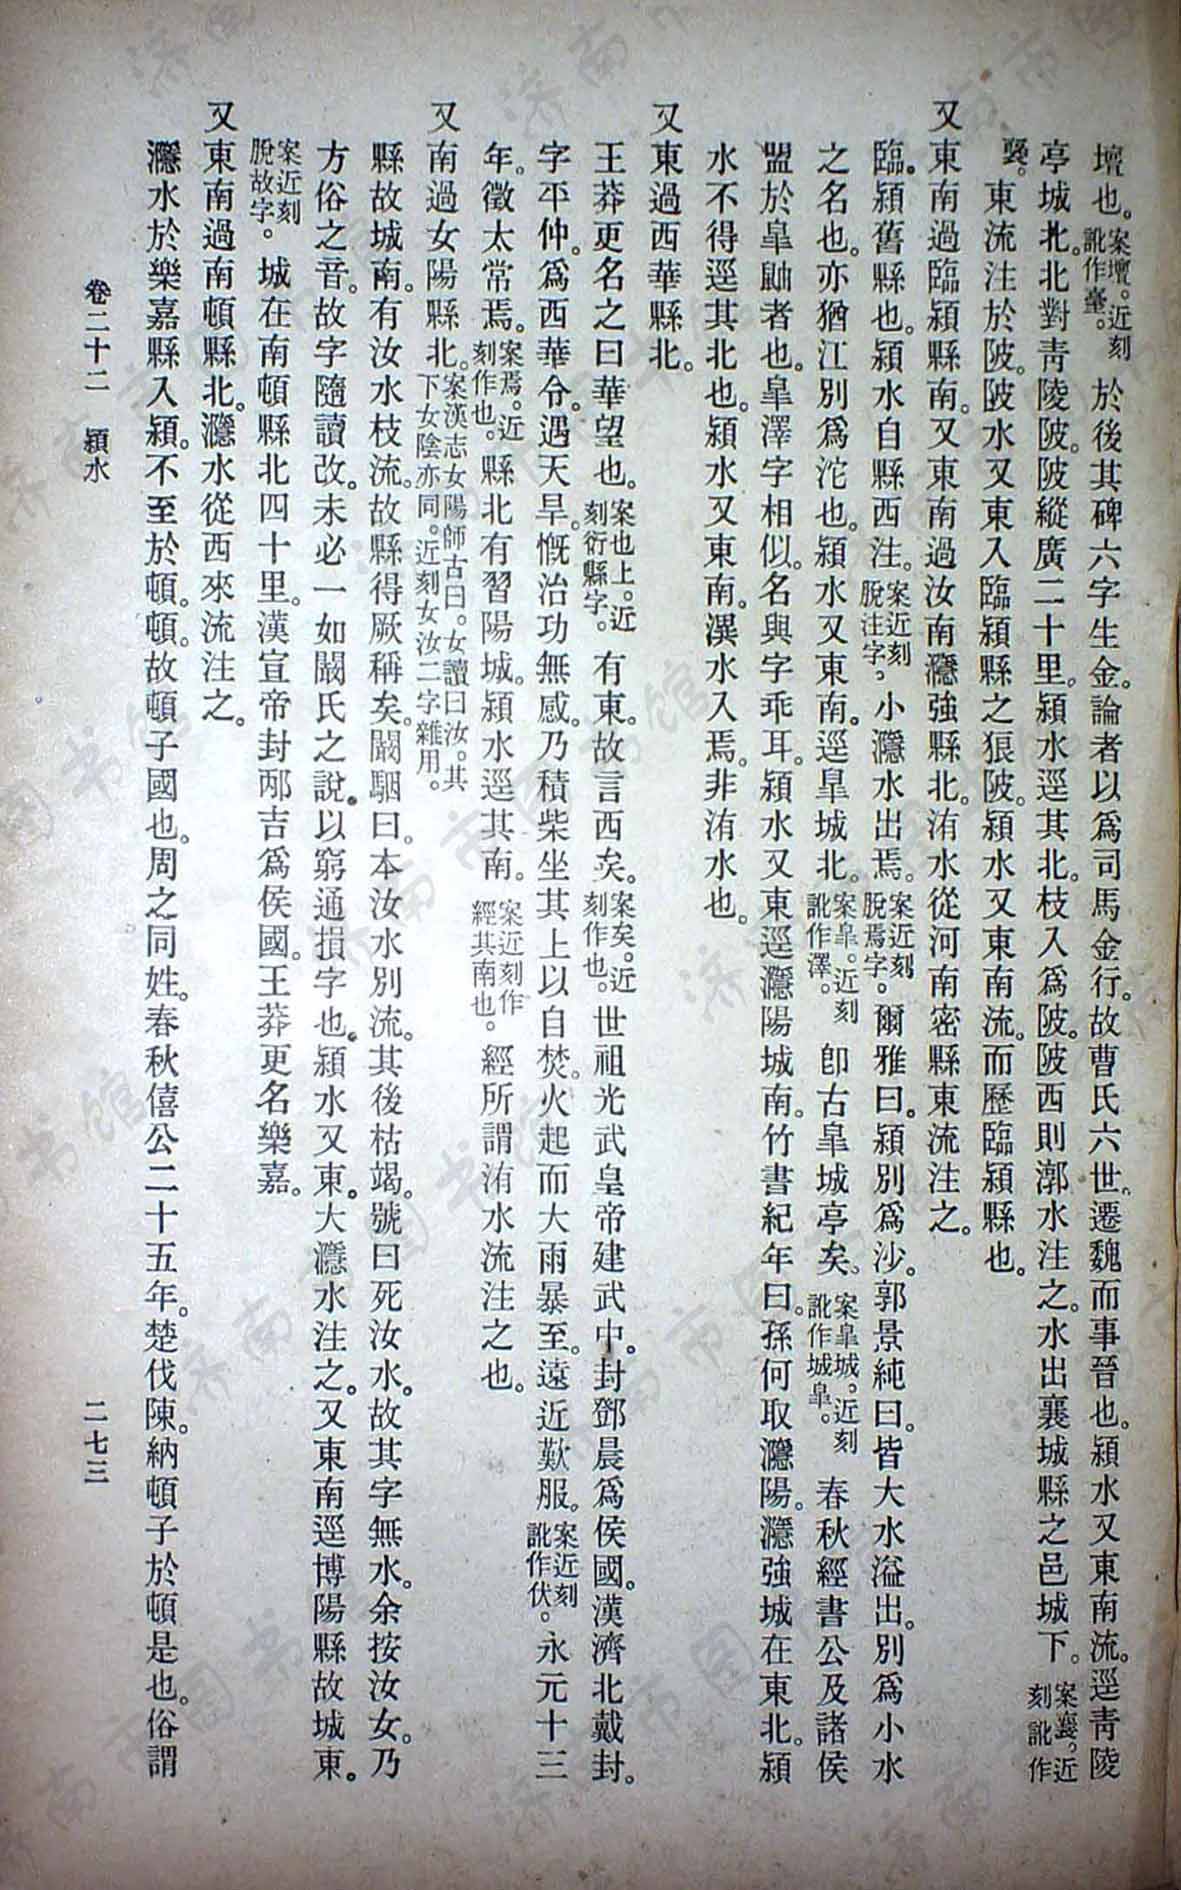 壇也。案壇。近刻訛作臺。於後其碑六字生金。論者以爲司馬金行。故曹氏六世。遷魏而事晉也。潁水又東南流。逕靑陵
亭城北。北對靑陵陂。陂縱廣二十里。潁水逕其北。枝入爲陂。陂西則漷水注之。水出襄城縣之邑城下。案襄。近刻訛作
襃。東流注於陂。陂水又東入臨潁縣之狼陂。潁水又東南流。而歷臨潁縣也。
又東南過臨潁縣南。又東南過汝南㶏強縣北。洧水從河南密縣東流注之。
臨。潁舊縣也。潁水自縣西注。案近刻脫注字。小㶏水出焉。案近刻脫焉字。爾雅曰。潁別爲沙。郭景純曰。皆大水溢出。別爲小水
之名也。亦猶江別爲沱也。潁水又東南。逕臯城北。案臯。近刻訛作澤。卽古臯城亭矣。案臯城。近刻訛作城臯。春秋經書公及諸侯
盟於臯鼬者也。臯澤字相似。名與字乖耳。潁水又東逕㶏陽城南。竹書紀年曰。孫何取㶏陽。㶏強城在東北。潁
水不得逕其北也。潁水又東南。潩水入焉。非洧水也。
又東過西華縣北。
王莽更名之曰華望也。案也上。近刻衍縣字。有東。故言西矣。案矣。近刻作也。世祖光武皇帝建武中。封鄧晨爲侯國。漢濟北戴封。
字平仲。爲西華令。遇天旱。慨治功無感。乃積柴坐其上以自焚。火起而大雨暴至。遠近歎服。案近刻訛作伏。永元十三
年。徵太常焉。案焉。近刻作也。縣北有習陽城。潁水逕其南。案近刻作經其南也。經所謂洧水流注之也。
又南過女陽縣北。案漢志女陽師古曰。女讀曰汝。其下女陰亦同。近刻女汝二字雜用。
縣故城南。有汝水枝流。故縣得厥稱矣。闞駰曰。本汝水別流。其後枯竭。號曰死汝水。故其字無水。余按汝女。乃
方俗之音。故字隨讀改。未必一如闞氏之說。以窮通損字也。潁水又東。大㶏水注之。又東南逕博陽縣故城東。
案近刻脫故字。城在南頓縣北四十里。漢宣帝封邴吉爲侯國。王莽更名樂嘉。
又東南過南頓縣北。㶏水從西來流注之。
㶏水於樂嘉縣入潁。不至於頓。頓。故頓子國也。周之同姓。春秋僖公二十五年。楚伐陳。納頓子於頓是也。俗謂
卷二十二 潁水 二七三